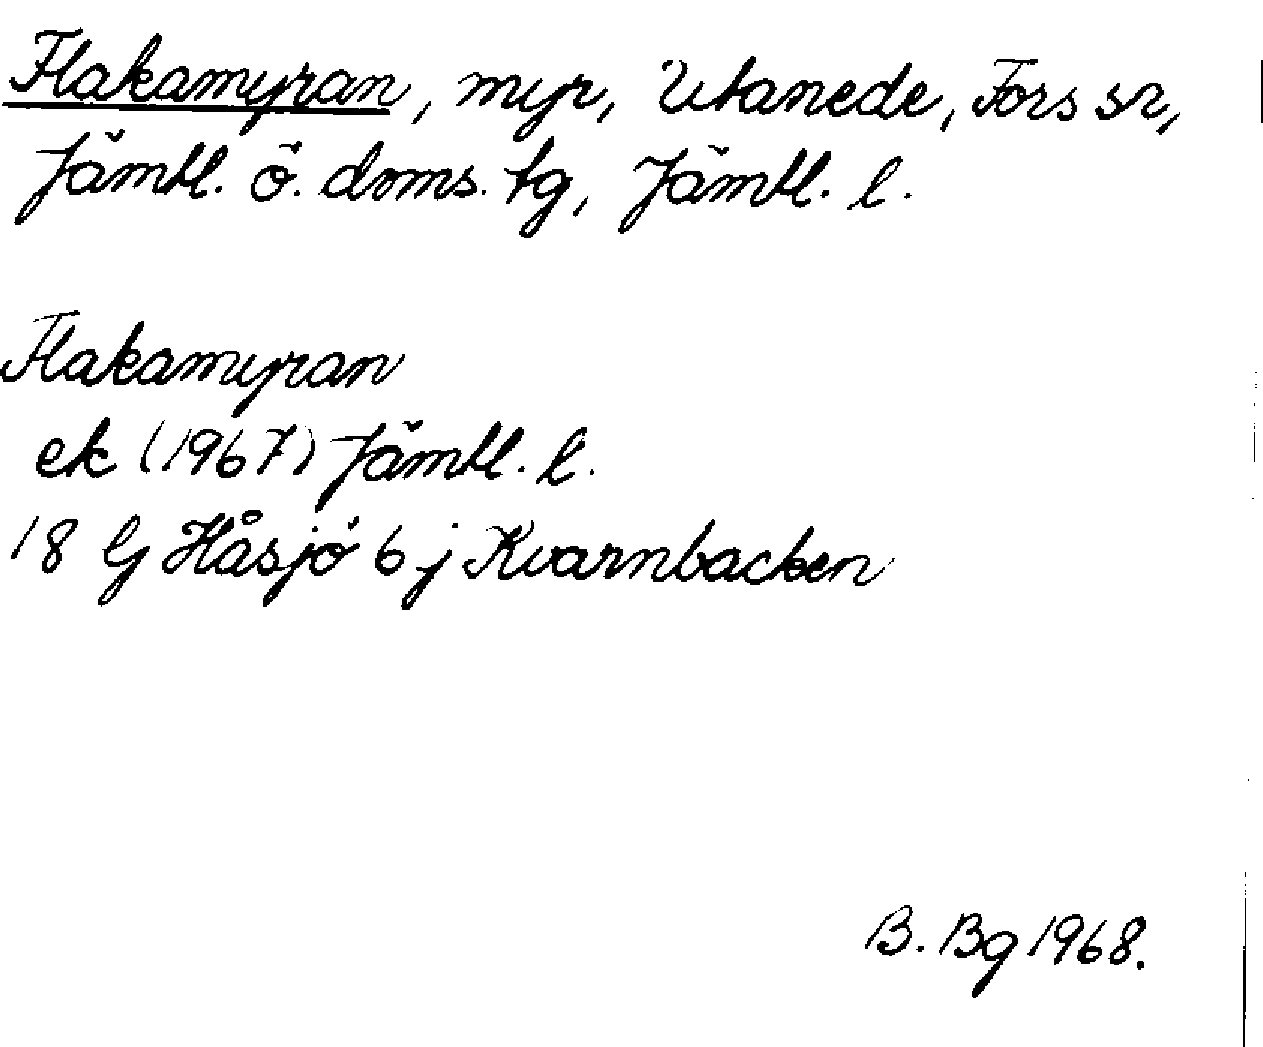 Flakamyran, myr, Utanede, Fors sn,
Jämtl. ö. doms. tg, Jämtl. l.
Flakamyran
ek (1967) Jämtl. l.
18 G Håsjö 6 j Kvarnbacken
B. Bg 1968.